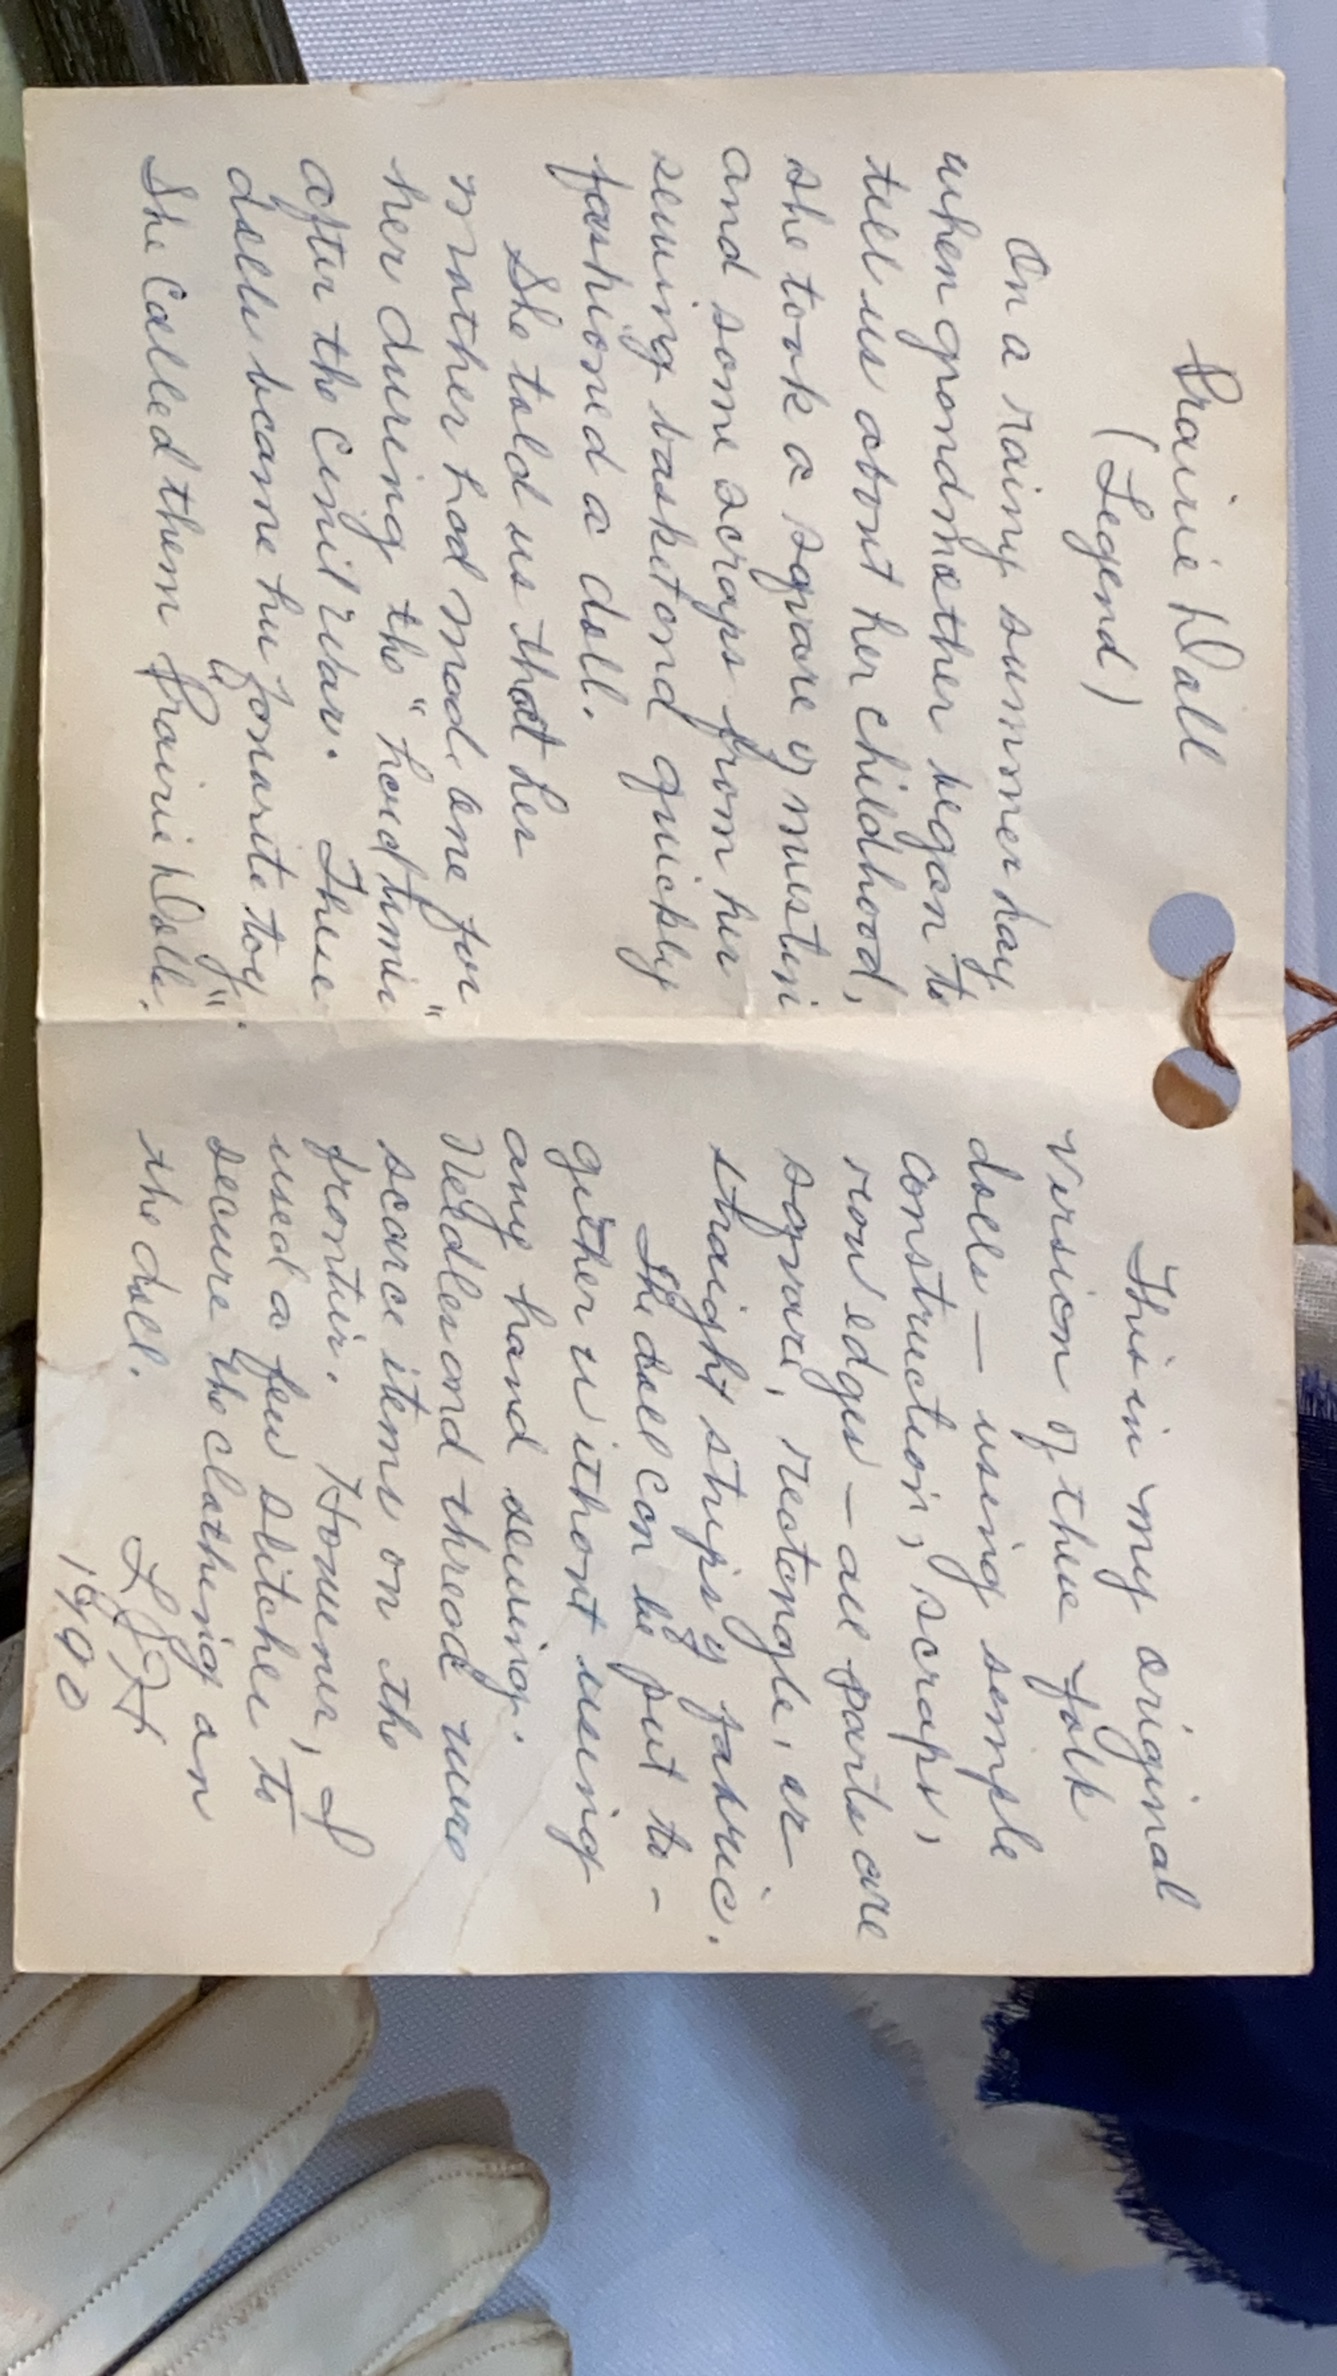 Prairie Doll
(Legend)
On a rainy summer day
when grandmother began to
tell us about her childhood,
she took a square of muslin
and some scraps from her
sewing basket and quickly
fashioned a doll.
She told us that her
mother had made one for
her during the "hard times"
after the Civil War. These
dolls became her favorite toy.
She called them "Prairie Dolls."
This is my original
version of these folk
dolls — using simple
construction, scraps,
raw edges — all parts are
square, rectangle, or
straight strips of fabric.
The doll can be put to-
gether without using
any hand sewing.
Needles and thread were
scarce items on the
frontier. However, I
used a few stitches to
secure the clothing on
the doll.
LJH
1990